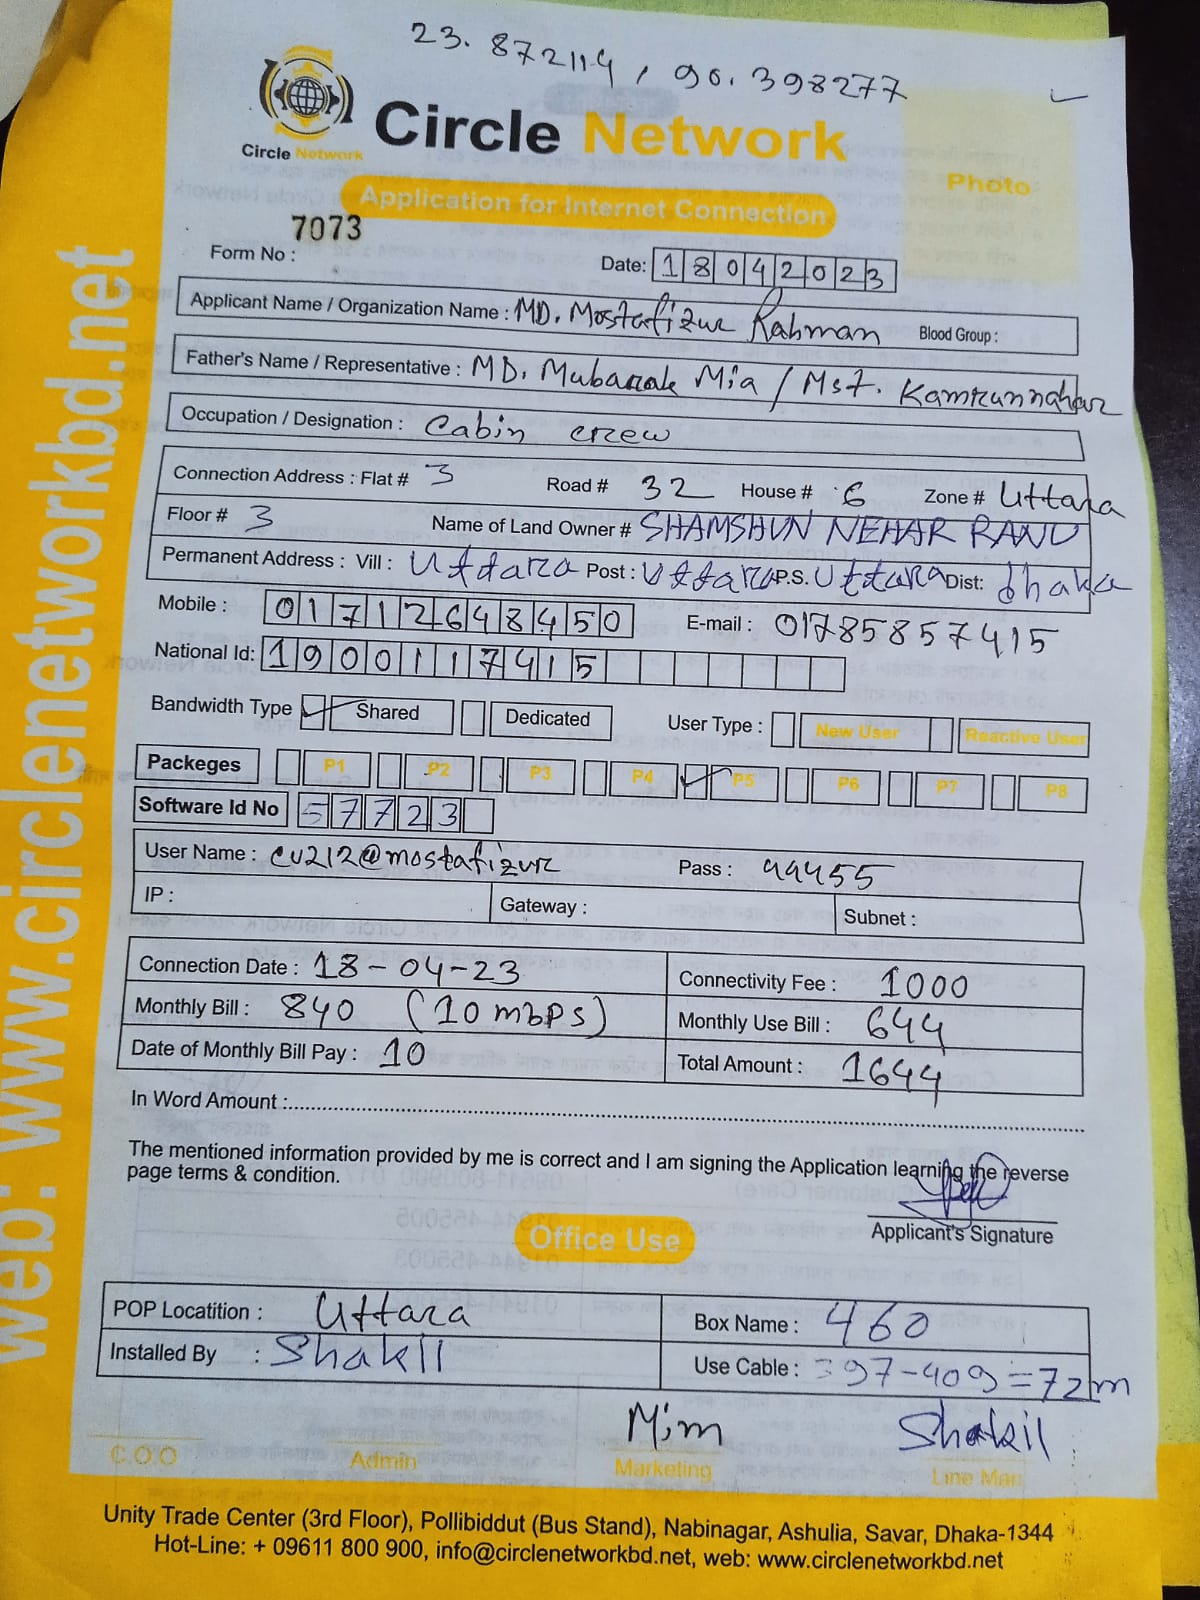 23.872114, 90.398277
Circle Network
Circle Network
Photo
Application for Internet Connection
7073
Form No :
Date: 18042023
Applicant Name / Organization Name : MD. Mostafizur Rahman Blood Group :
Father's Name / Representative : MD. Mubarak Mia / Mst. Kamrunnahar
Occupation / Designation : Cabin crew
Connection Address : Flat # 3 Road # 32 House # 6 Zone # Uttara
Floor # 3 Name of Land Owner # SHAMSHUN NEHAR RANU
Permanent Address : Vill : Uttara Post : Uttara P.S. Uttara Dist: dhaka
Mobile : 01712648450 E-mail : 01785857415
National Id: 1900117415
Bandwidth Type Shared Dedicated User Type : New User Reactive User
Packeges P1 P2 P3 P4 P5 P6 P7 P8
Software Id No 57723
User Name : cv212@mostafizur Pass : 44455
IP : Gateway : Subnet :
Connection Date : 18-04-23 Connectivity Fee : 1000
Monthly Bill : 840 (10 mbps) Monthly Use Bill : 644
Date of Monthly Bill Pay : 10 Total Amount : 1644
In Word Amount :
The mentioned information provided by me is correct and I am signing the Application learning the reverse
page terms & condition.
Applicant's Signature
Office Use
POP Locatition : Uttara Box Name : 460
Installed By : Shakil Use Cable : 397-409=72m
Mim Shakil
C.O.O Admin Marketing Line Man
Unity Trade Center (3rd Floor), Pollibiddut (Bus Stand), Nabinagar, Ashulia, Savar, Dhaka-1344
Hot-Line: + 09611 800 900, info@circlenetworkbd.net, web: www.circlenetworkbd.net
web: www.circlenetworkbd.net